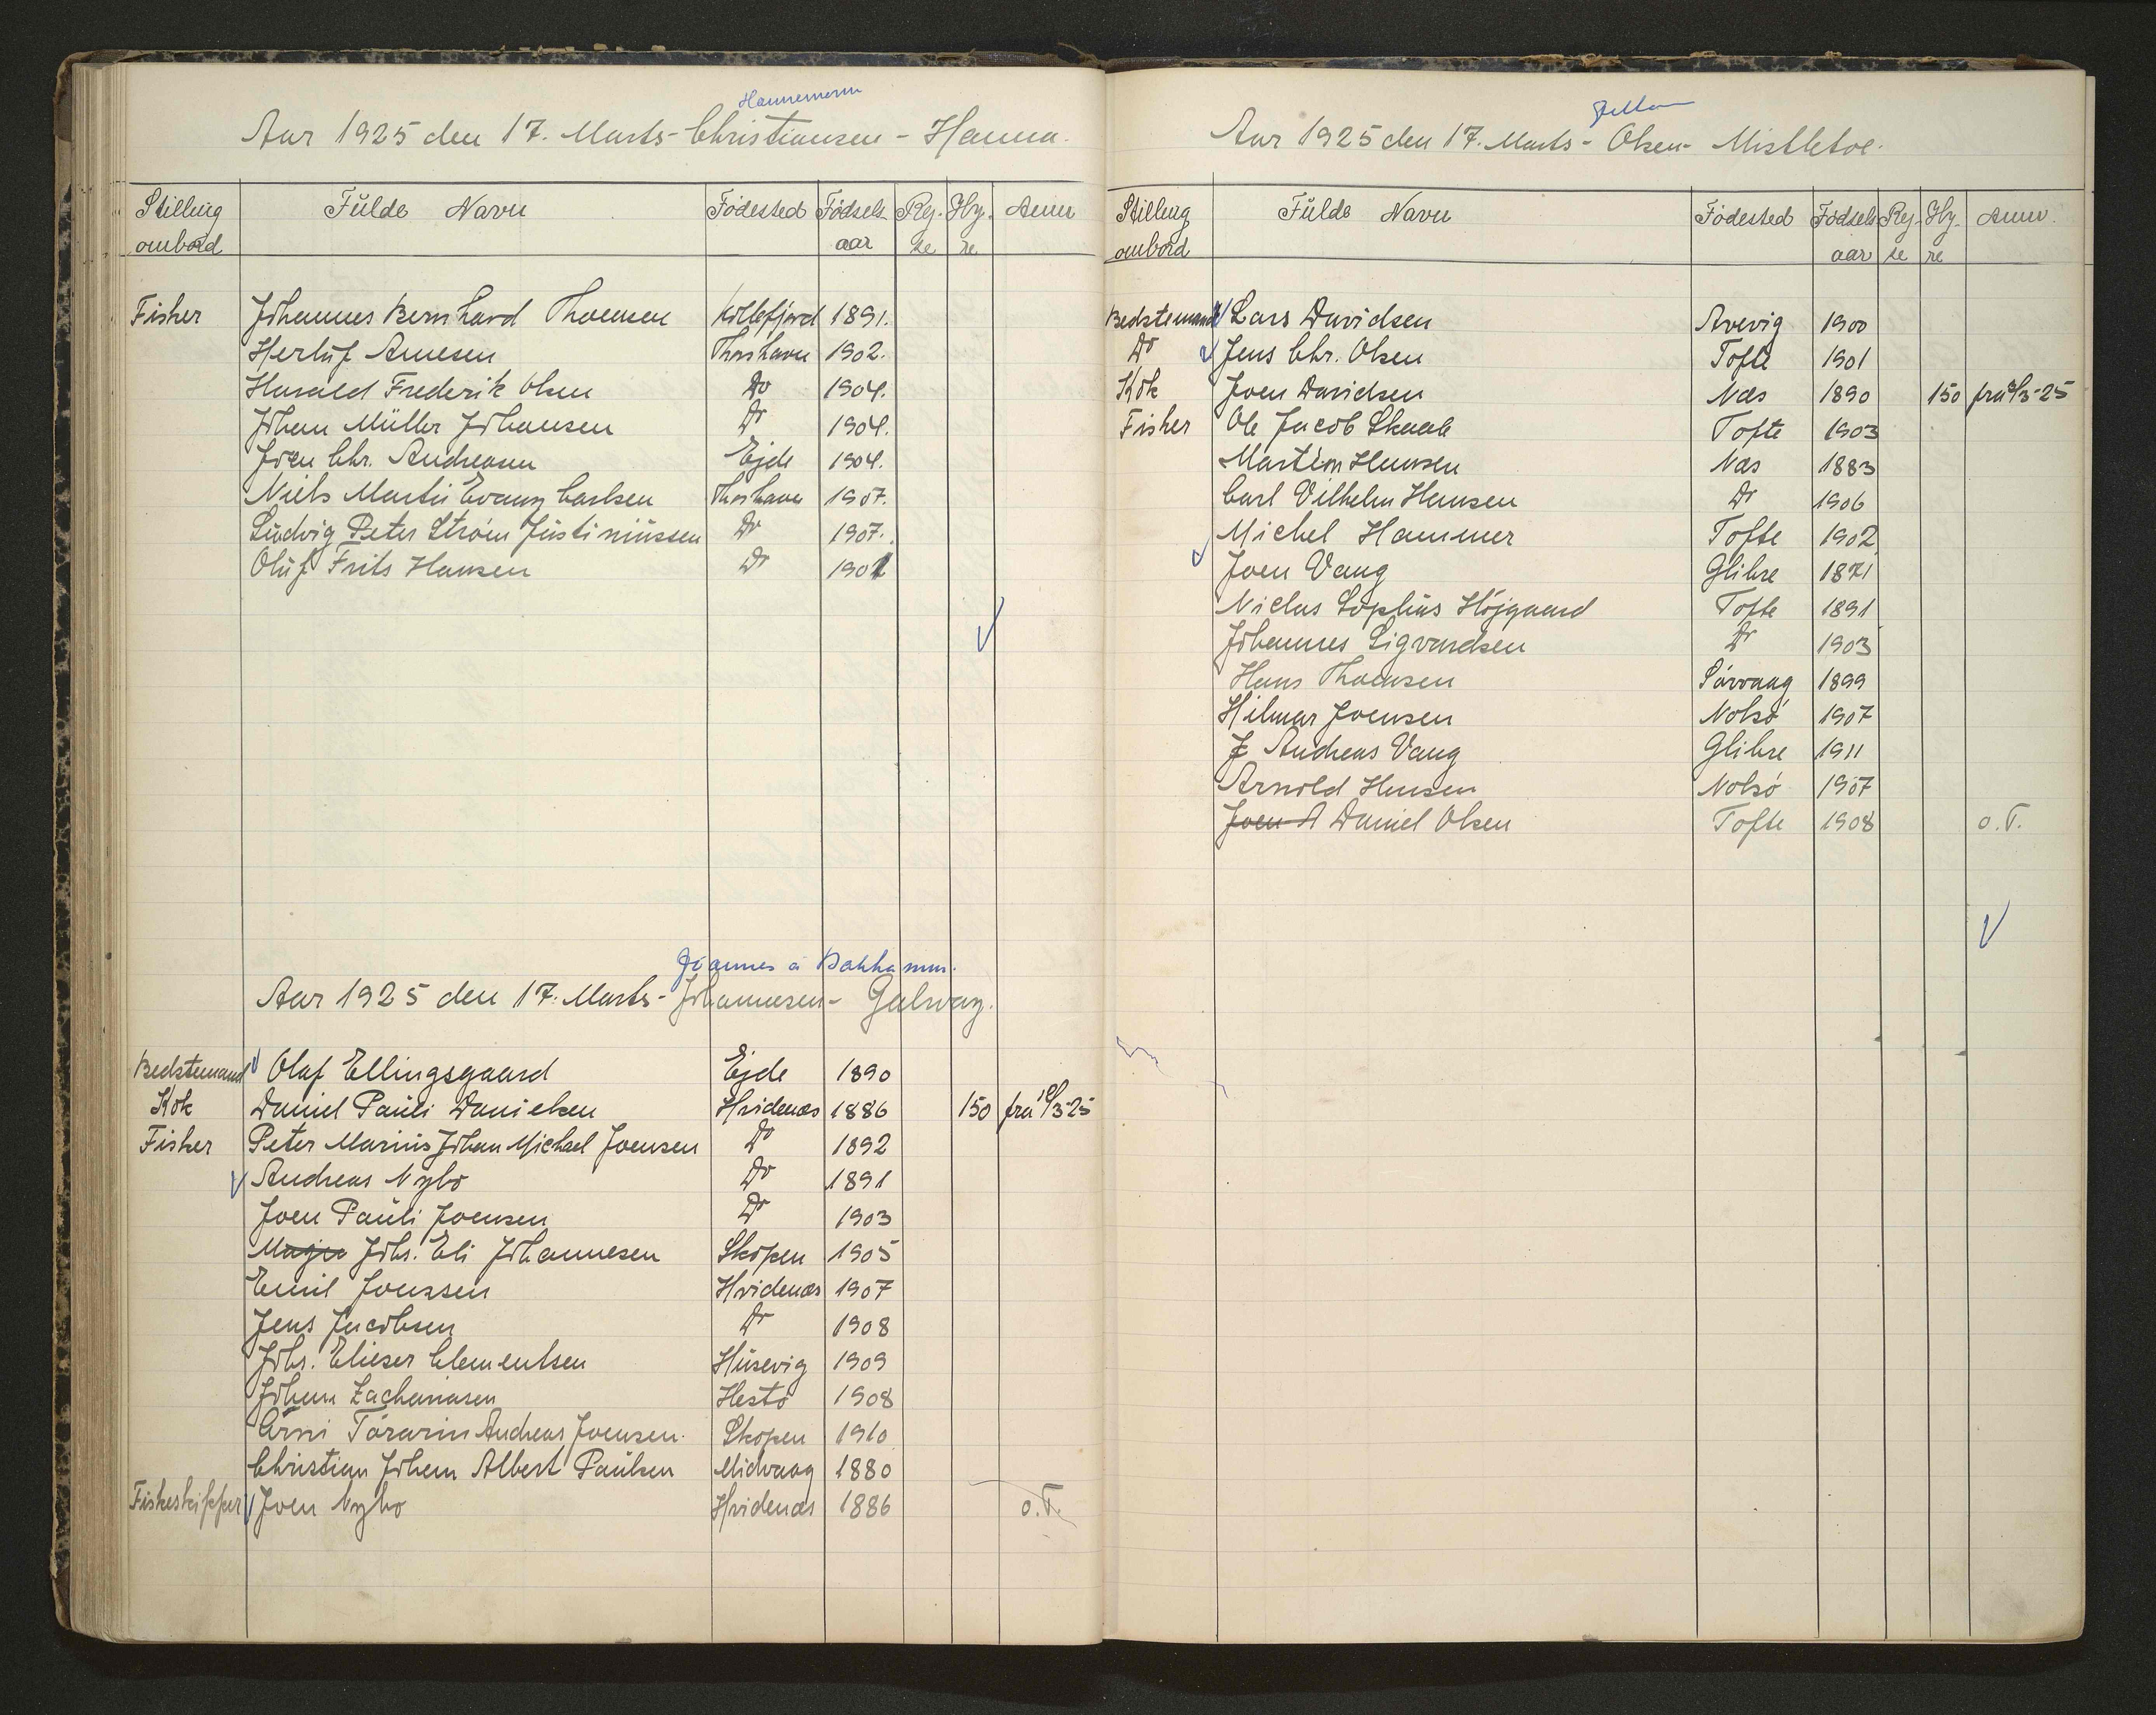 Hannemann
Aar 1925 den 17. Marts - Christiansen - Hanna.
Stilling ombord Fulde Navn Födested Födsels aar Rej- se Hy- re Anm
Fisher Johannes Bernhard Thomsen Kollefjord 1891.
Herluf Arnesen Thorshavn 1902.
Harald Frederik Olsen Do 1904.
Johan Müller Johansen Do 1904.
Joen Chr. Andreasen Ejde 1904.
Niels Martin Carlsen Thorshavn 1907.
Ludvig Peter Ström Justiniussen Do 1907.
Oluf Frits Hansen Do 1901
Joannes á Bakkanum.
Aar 1925 den 17. Marts - Johannesen - Galway.
Bedstemand Olaf Ellingsgaard Ejde 1890
Kok Daniel Pauli Danielsen Hvidenæs 1886 150 fra 10/3-25
Fisher Peter Marius Johan Michael Joensen Do 1892
Andreas Nybo Do 1891
Joen Pauli Joensen Do 1903
Johs. Eli Johannesen Skopen 1905
Emil Joensen Hvidenæs 1907
Jens Jacobsen Do 1908
Johs. Elieser Clementsen Husevig 1909
Johan Zachariasen Hestö 1908
Arni Tórarin Andreas Joensen. Skopen 1910
Christian Johan Albert Paulsen Midvaag 1880
Fiskeskipper Joen Nybo Hvidenæs 1886 o.T.
Aar 1925 den 17. Marts - Olsen - Mistletoe.
Stilling ombord Fulde Navn Födested Födsels aar Rej- se Hy- re Anm.
Bedstemand Lars Davidsen Arevig 1900
Do Jens Chr. Olsen Tofte 1901
Kok Joen Davidsen Næs 1890 150 fra /3-25
Fisher Ole Jacob Skaale Tofte 1903
Martin Hansen Næs 1883
Carl Vilhelm Hansen Do 1906
Michel Hammer Tofte 1902
Joen Vang Glibre 1871
Niclas Sophus Höjgaard Tofte 1891
Johannes Sigvardsen Do 1903
Hans Thomsen Sörvaag 1899
Hilmar Joensen Nolsö 1907
J Andreas Vang Glibre 1911
Arnold Hansen Nolsö 1907
Joen A Daniel Olsen Tofte 1908 o.T.